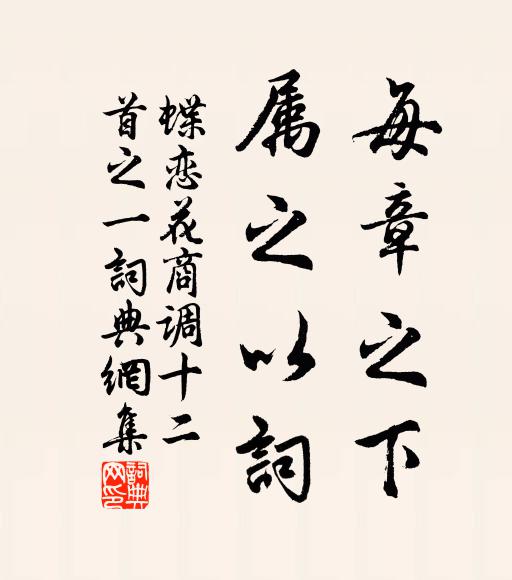 每章之下
属之以詞
蝶恋花商调十二
首之一詞典網集
詞典
网印